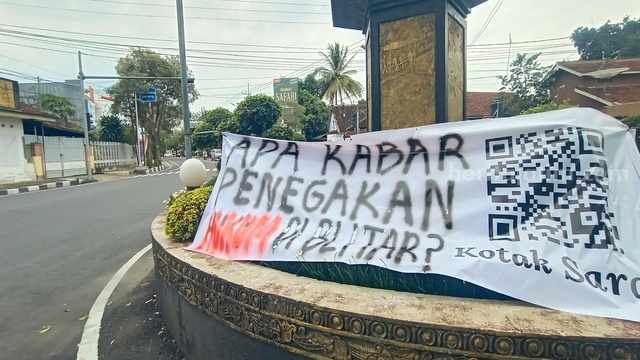 SAFARI
APA KABAR
PENEGAKAN
HUKUM DI BLITAR?
Kotak Sara